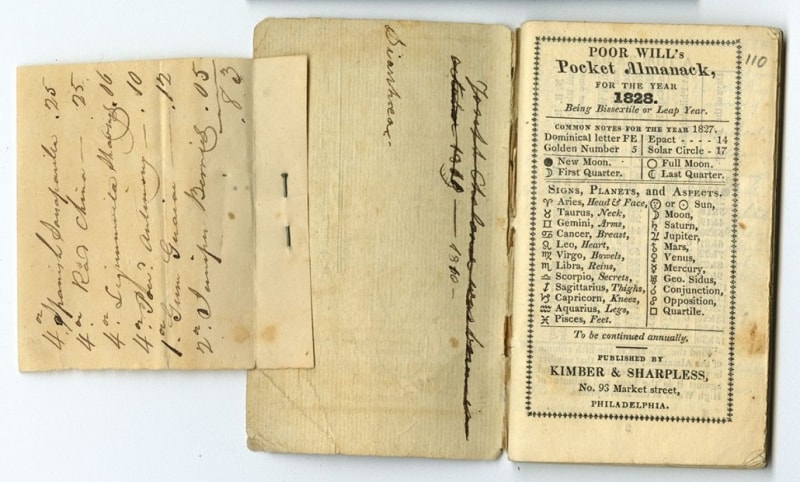 4 oz Spanish Sarsaparilla .25
4 oz Rad China — .25
4 oz .16
4 oz Antimony — .10
1 oz Gum Guaia .12
2 oz Juniper .05
83
Joseph was born in
— 1810 -
110
POOR WILL's
Pocket Almanack,
FOR THE YEAR
1828.
Being Bissextile or Leap Year.
COMMON NOTES FOR THE YEAR 1827.
Dominical letter FE Epact - - - - 14
Golden Number 5 Solar Circle - 17
● New Moon. ○ Full Moon.
☽ First Quarter. ☾ Last Quarter.
SIGNS, PLANETS, and ASPECTS.
♈ Aries, Head & Face, or ☉ Sun,
♉ Taurus, Neck, ☽ Moon,
♊ Gemini, Arms, ♄ Saturn,
♋ Cancer, Breast, ♃ Jupiter,
♌ Leo, Heart, Mars,
♍ Virgo, Bowels, ♀ Venus,
Libra, Reins, ☿ Mercury,
Scorpio, Secrets, ♅ Geo. Sidus,
Sagittarius, Thighs, ☌ Conjunction,
♑ Capricorn, Knees, ☍ Opposition,
♒ Aquarius, Legs, □ Quartile.
♓ Pisces, Feet.
To be continued annually.
PUBLISHED BY
KIMBER & SHARPLESS,
No. 93 Market street,
PHILADELPHIA.